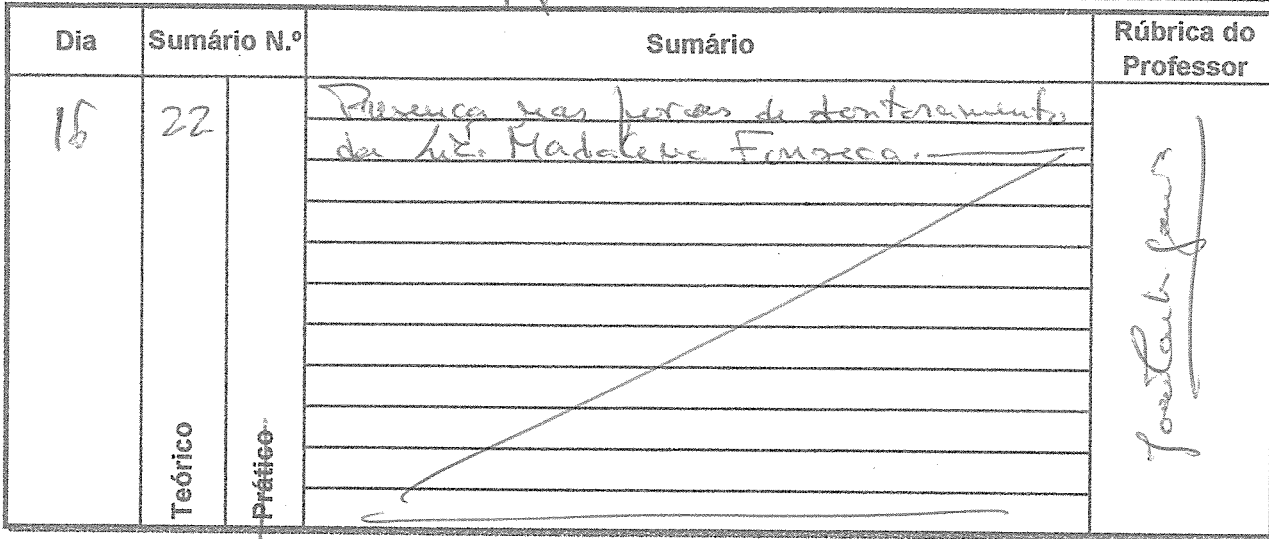 Dia Sumário N.º Sumário Rúbrica do Professor
Teórico Prático
22
Presença nas provas de doutoramento
da Lic. Madalena Fonseca.